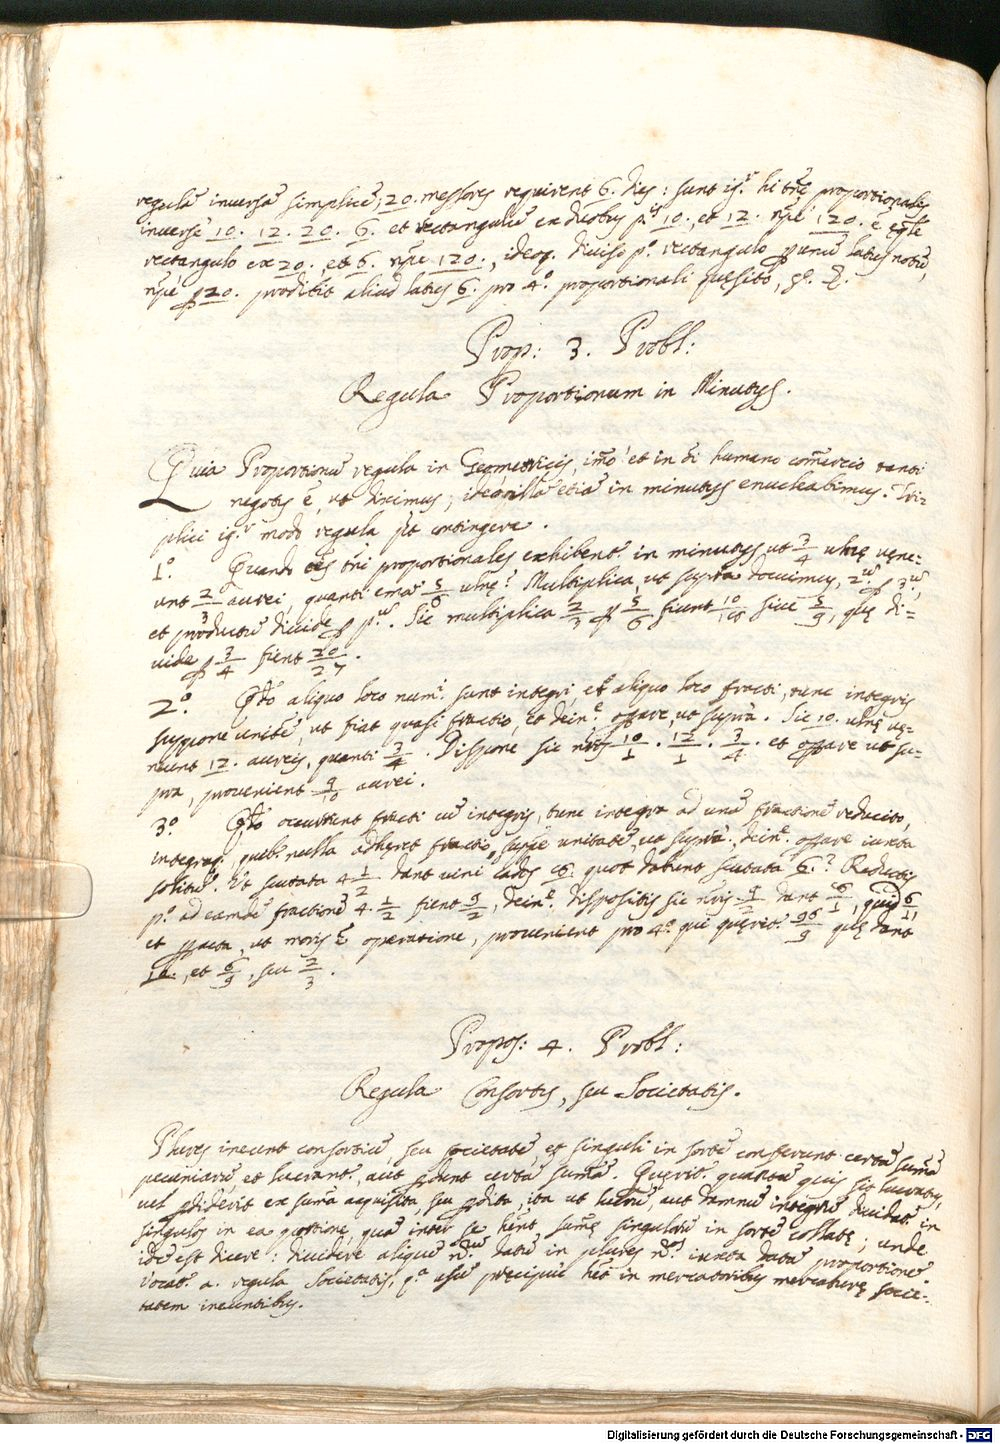 regulã inversã simplicẽ, 20. messores requirent 6. dies: sunt ig.r hi tres proportionales
inversè 10. 12. 20. 6. et rectangulũ ex duobus p.is 10. et 12. npè 120. ẽ ęqle
rectangulo ex 20. et 6. npè 120., ideoq. diviso p.o rectangulo p unũ latus notũ,
npè p 20. prodibit aliud latus 6. pro 4.o proportionali quęsito,
Prop: 3. Probl:
Regula Proportionum in Minutijs.
Quia Proportionũ regula in Geometricis, imò et in oi humano comercio tanti
negotij ẽ, ut diximus, ideo illã etiã in minutijs enucleabimus. Tri-
plici ig.r modo regula pt contingere.
1.o Quando oes tres proportionales exhibent.r in minutijs ut 3/4 ulnę vęne-
unt 2/3 aurei, quanti emã 5/6 ulnę? Multiplica, ut supra docuimus, 2.w p 3.w,
et productũ divide p p.w. Sic multiplica 2/3 p 5/6 fiunt 10/18 sive 5/9, quę di-
vide p 3/4 fient 20/27.
2.o Qdo aliquo loco nuṁi sunt integri et aliquo loco fracti, tunc integris
suppone unitẽ, ut fiat quasi fractio, et dein.e opare ut supra. Sic 10. ulnę vę-
neunt 12. aureis, quanti 3/4. Dispone sic nros 10/1. 12/1. 3/4. et opare ut su-
pra, provenient 9/10 aurei.
3.o Qdo occurrent fracti cũ integris, tunc integra ad unã fractionẽ reducito,
integrisq, quib. nulla adhęret fractio, suppõe unitatẽ, ut supra. dein.e opare iuxta
solitũ. Ut scutata 4 1/2 dant vini cados 16. quot dabunt scutata 6.? Reductis
p.o ad eamdẽ fractionẽ 4. 1/2 fient 9/2, dein.e dispositis sic nris 9/2 dant 16/1, quid 6/1,
et pacta, ut moris ẽ operatione, provenient pro 4.o qui quęrit.r 96/9 quę dant
10., et 6/9, seu 2/3.
Propos: 4. Probl:
Regula Consortij, seu Societatis.
Plures ineunt consortiũ, seu societatẽ, et singuli in sortẽ conferunt certã sumã
pecuniarũ et lucrant.r, aut pdunt certã sumã. Quęrit.r quantũ quis sit lucratus,
vel pdiderit ex sumã acquisita, seu pdita, ita ut lucrũ, aut damnũ integrũ dividat.r in
singulos in ea portione, quã inter se hẽnt sumę singulorũ in sortẽ collatę; unde
idẽ est dicere: dividere aliquẽ nr̃w datũ in plures nr̃os iuxta datã proportionẽ.
Vocat.r a. regula Societatis, q.a usũ pręcipuũ het in mercatoribus mercaturę socie-
tatem ineuntibus.
Digitalisierung gefördert durch die Deutsche Forschungsgemeinschaft - DFG